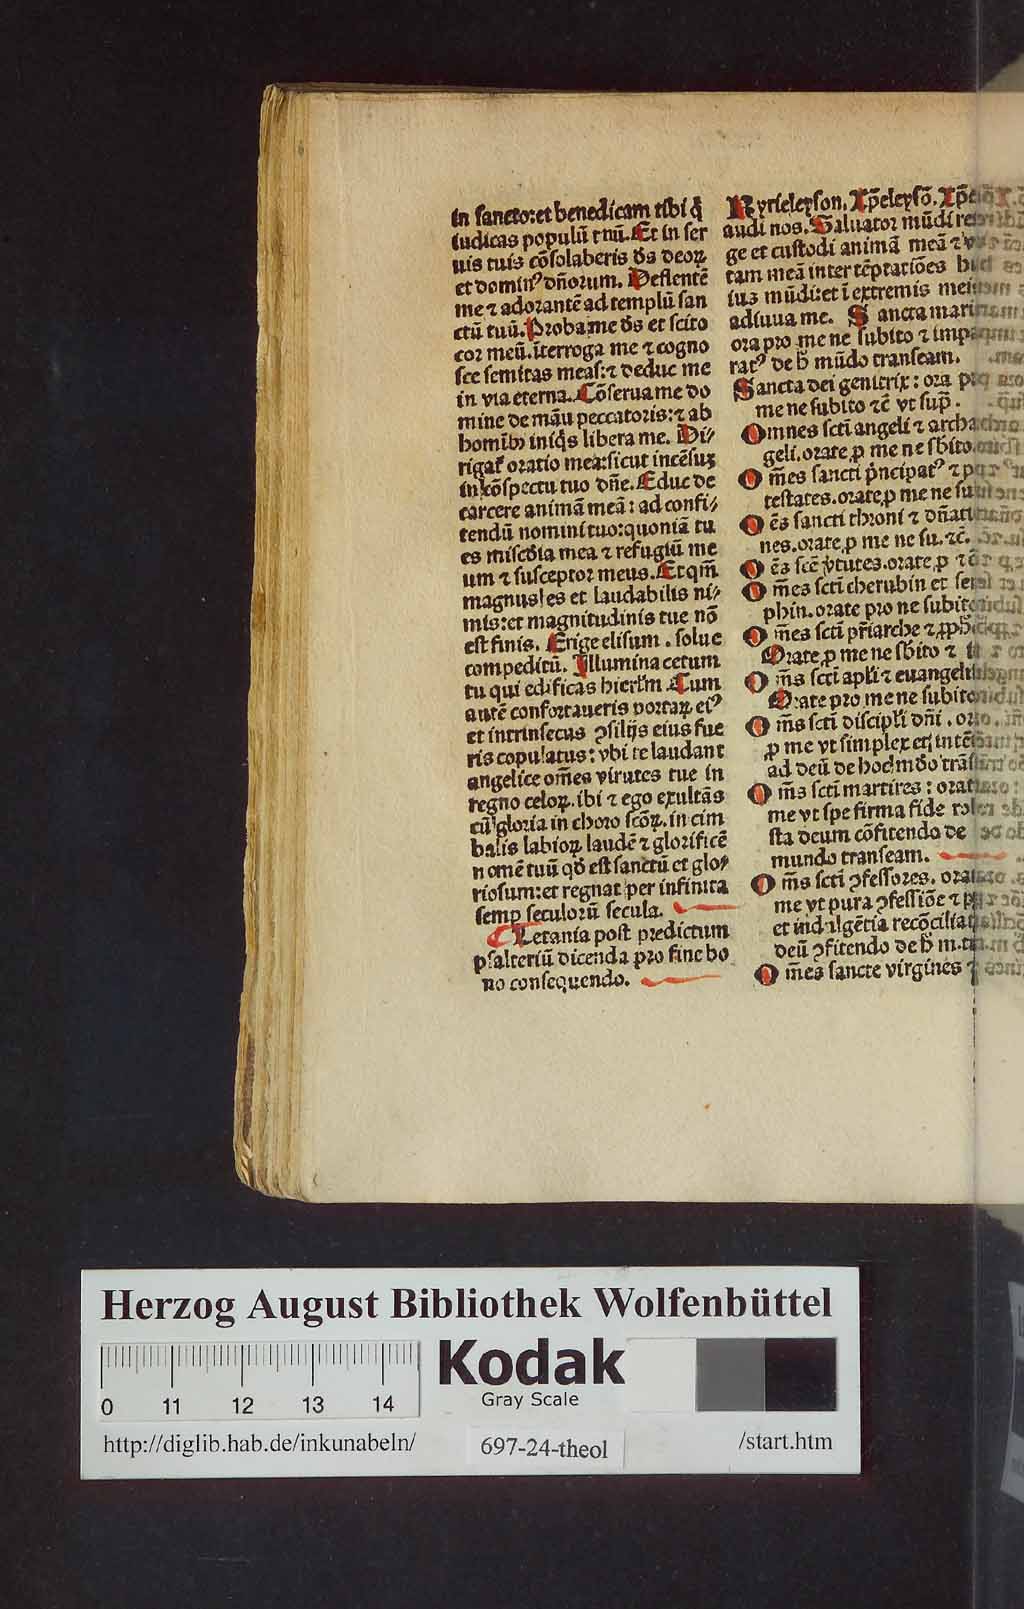 in sancto:et benedicam tibi q̄
iudicas populū tuū. Et in ser
uis tuis cōsolaberis ds̄ deoꝝ
et dominꝰ dn̄orum. Deflentē
me ⁊ adorantē ad templū san
ctū tuū. Proba me ds̄ et scito
cor meū. īterroga me ⁊ cogno
sce semitas meas:⁊ deduc me
in via eterna. Cōserua me do
mine de māu peccatoris:⁊ ab
homībꝰ iniq̄s libera me. Di⸗
rigat̄ oratio mea:sicut incēsuꝫ
in cōspectu tuo dn̄e. Educ de
carcere animā meā: ad confi⸗
tendū nomini tuo:quoniā tu
es misc̄dia mea ⁊ refugiū me
um ⁊ susceptor meus. Et qm̄
magnus es et laudabilis ni⸗
mis:et magnitudinis tue nō
est finis. Erige elisum. solue
compeditū. Illumina cetum
tu qui edificas hierlm̄. Cum
autē confortaueris portaꝝ eiꝰ
et intrinsecus ꝯsilijs eius fue
ris copulatus: vbi te laudant
angelice om̄es virutes tue in
regno celoꝝ. ibi ⁊ ego exultās
cū gloria in choro scōꝝ. in cim
balis labioꝝ laudē ⁊ glorificē
nomē tuū qd̄ est sanctū et glo⸗
riosum:et regnat per infinita
semꝑ seculorū secula.
Letania post predictum
psalteriū dicenda pro fine bo
no consequendo.
Kyrieleyson. Xp̄eleysō.
audi nos. Saluator mūdi
ge et custodi animā meā ⁊
tam meā inter tēptatiōes
ius mūdi:et ī extremis
adiuua me. Sancta
ora pro me ne subito ⁊
ratꝰ de h̄ mūdo transeam.
Sancta dei genitrix: ora
me ne subito ⁊c̄ vt sup̄.
Omnes sctī angeli ⁊
geli. orate ꝑ me ne sb̄ito
Om̄es sancti p̄ncipatꝰ ⁊
testates. orate ꝑ me ne
Oēs sancti throni ⁊
nes. orate ꝑ me ne su. ⁊c̄.
Oēs scē v̄tutes. orate ꝑ
Om̄es sctī cherubin et
phin. orate pro ne
Om̄es sctī pr̄iarche ⁊
Orate ꝑ me ne sb̄ito ⁊
Om̄s sctī apl̄i ⁊
Orate pro me ne
Om̄s sctī discipl̄i dn̄i.
ꝑ me vt simplex et
ad deū de hoc mdō
Om̄s sctī martires:
me vt spe firma fide
sta deum cōfitendo de
mundo transeam.
Om̄s sctī ꝯfessores.
me vt pura ꝯfessiōe ⁊
et indulgētia
deū ꝯfitendo de h̄ m.
Om̄es sancte virgines ⁊
Herzog August Bibliothek Wolfenbüttel
0 11 12 13 14
Kodak
Gray Scale
http://diglib.hab.de/inkunabeln/
697-24-theol
/start.htm